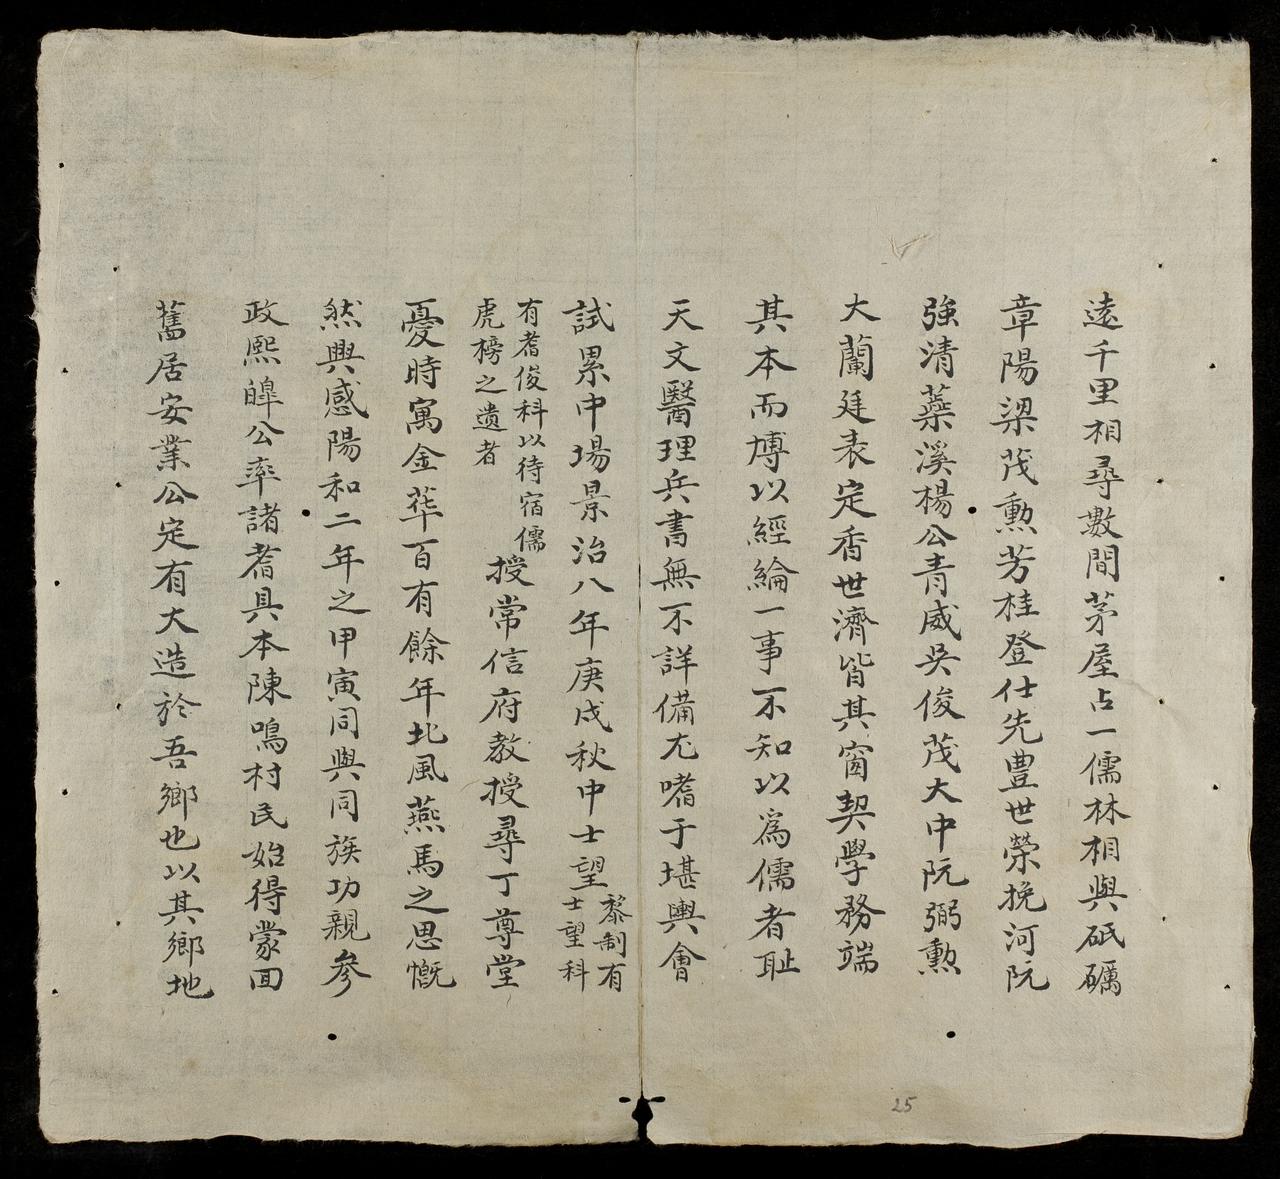 遠千里相尋數間茅屋占一儒林相與砥礪
章陽梁茂勲芳桂登仕先豊世榮挽河阮
強清蘂溪楊公青威吳俊茂大中阮弼勲
大蘭廷表定香世濟皆其窗契學務端
其本而博以經綸一事不知以爲儒者耻
天文醫理兵書無不詳備尤嗜于堪輿會
試累中場景治八年庚戍秋中士望
黎制有士望科
有耆俊科以待宿儒
虎榜之遺者
授常信府教授尋丁尊堂
憂時寓金華百有餘年北風燕馬之思慨
然興感陽和二年之甲寅同與同族功親參
政熙皥公率諸耆具本陳鳴村民始得蒙回
舊居安業公定有大造於吾鄉也以其鄉地
25